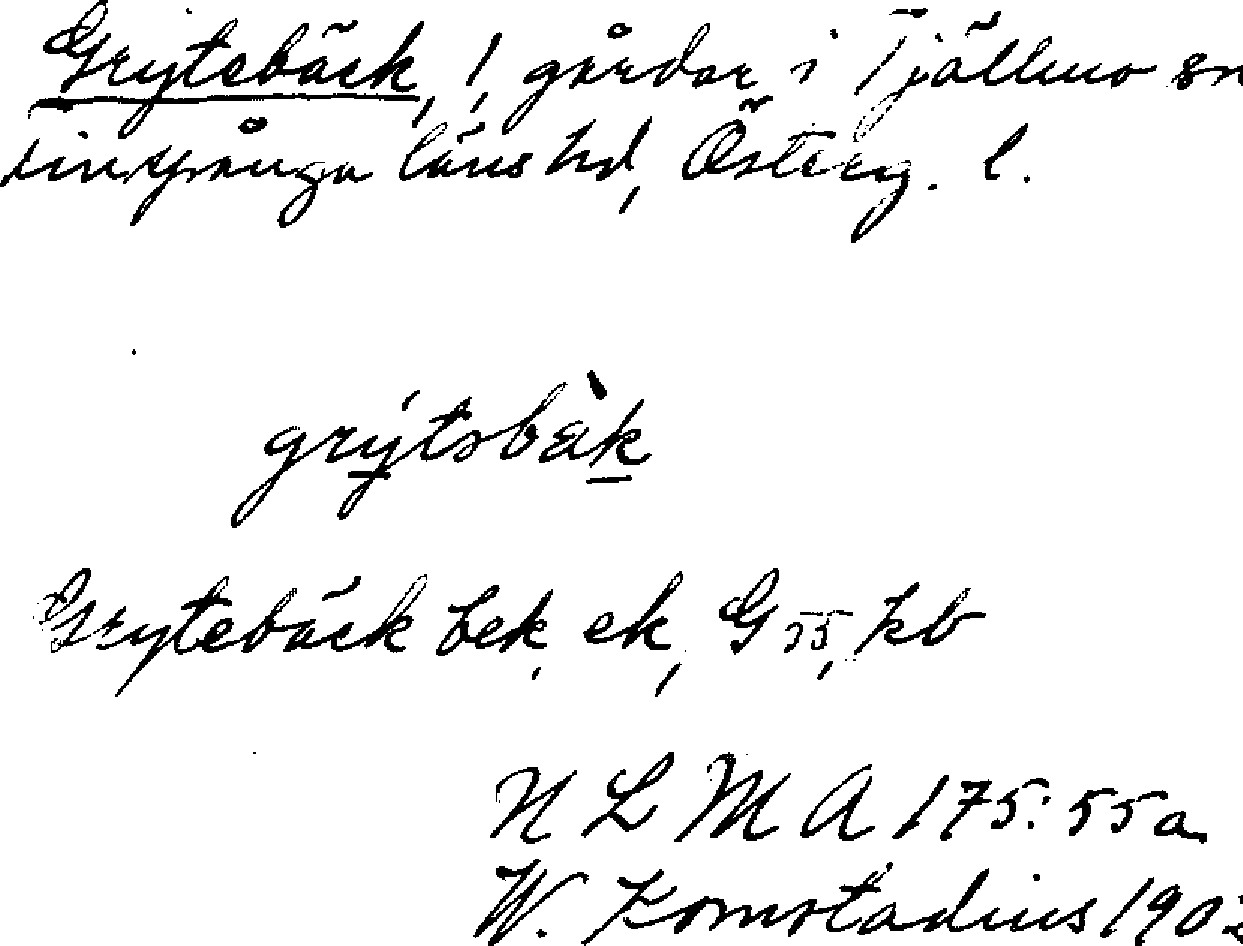 Grytebäck, !, gårdar i Tjällmo sn
Finspånga läns hd, Österg. l.
grýtsbäk
Grytebäck bek, ek, G 55, kb
N L M A 175: 55 a
W. Komstadius 190